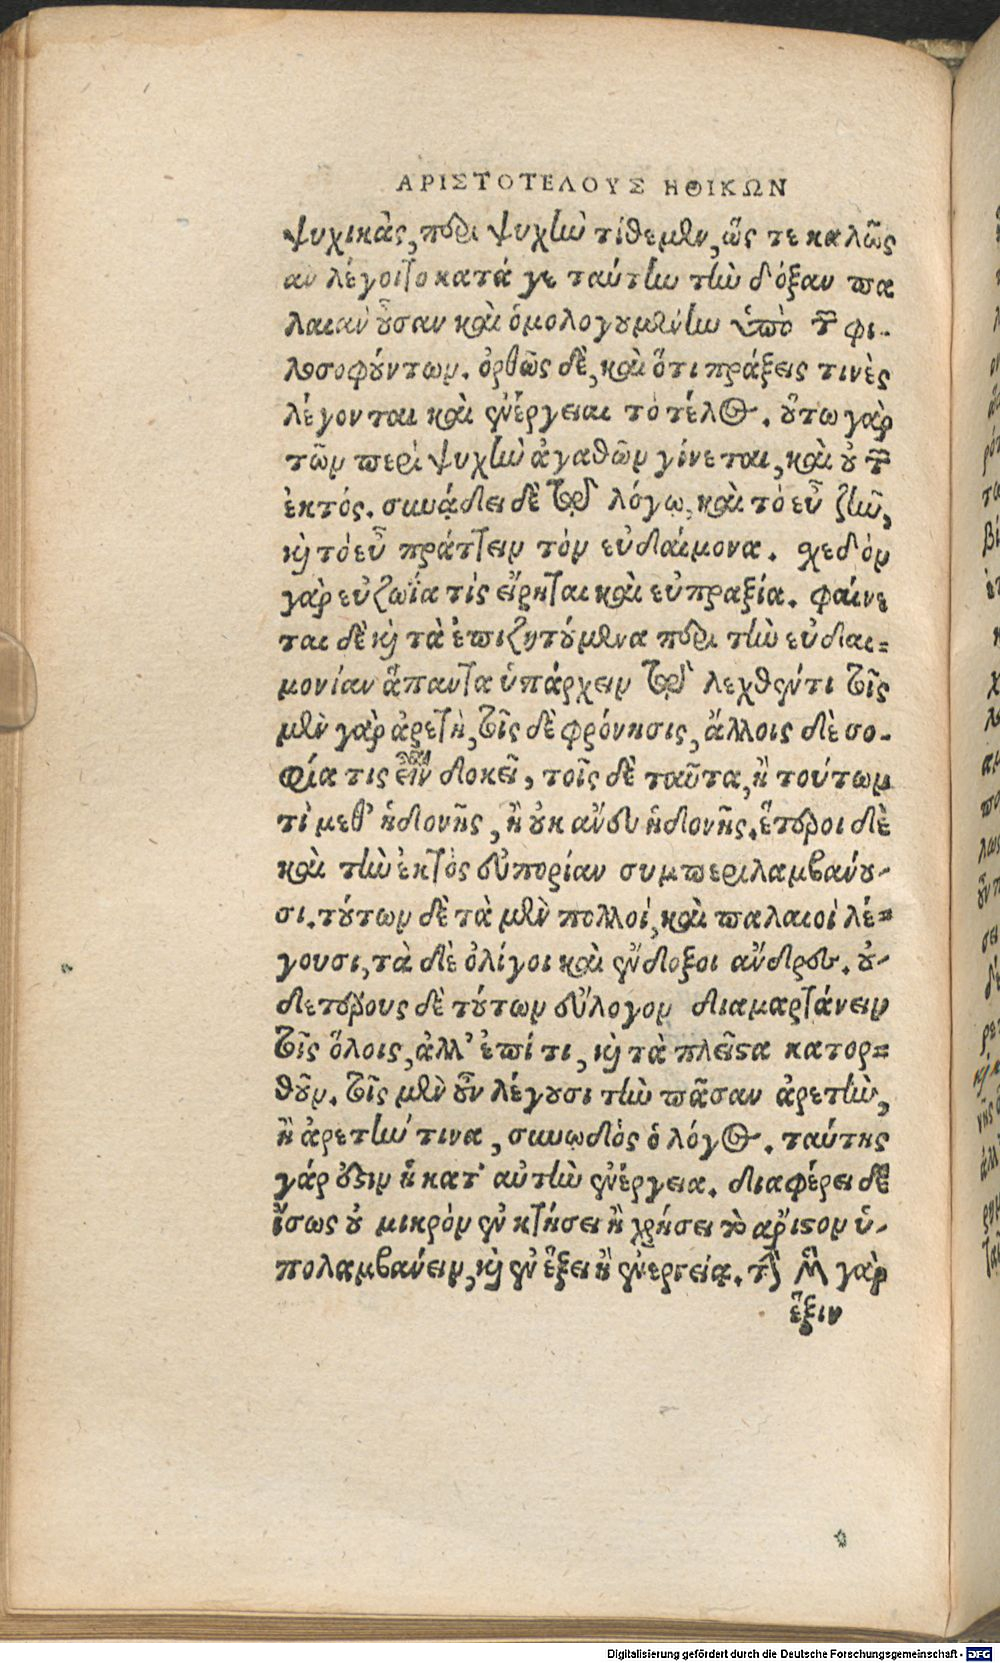 ΑΡΙΣΤΟΤΕΛΟΥΣ ΗΘΙΚΩΝ
ψυχικὰς, περὶ ψυχὴν τίθεμεν, ὥς τε καλῶς
αν λέγοιτο κατά γε ταύτην τὴν δόξαν πα
λαιὰν οὖσαν καὶ ὁμολογουμένην ὑπὸ τῶν φι-
λοσοφούντων. ὀρθῶς δὲ, καὶ ὅτι πράξεις τινὲς
λέγονται καὶ ἐνέργειαι τὸ τέλος. οὕτω γὰρ
τῶν περὶ ψυχὴν ἀγαθῶν γίνεται, καὶ οὐ τῶν
ἐκτός. συνᾴδει δὲ τῷ λόγῳ, καὶ τὸ εὖ ζῆν,
καὶ τὸ εὖ πράττειν τὸν εὐδαίμονα. σχεδὸν
γὰρ εὐζωΐα τίς εἴρηται καὶ εὐπραξία. φαίνε
ται δὲ καὶ τὰ ἐπιζητούμενα περὶ τὴν εὐδαι=
μονίαν ἅπαντα ὑπάρχειν τῷ λεχθέντι τοῖς
μὲν γὰρ ἀρετὴ, τοῖς δὲ φρόνησις, ἄλλοις δὲ σο-
φία τις εἶναι δοκεῖ, τοῖς δὲ ταῦτα, ἢ τούτων
τὶ μεθ' ἡδονῆς, ἢ οὐκ ἄνευ ἡδονῆς. ἕτεροι δὲ
καὶ τὴν ἐκτὸς εὐπορίαν συμπεριλαμβάνου-
σι. τούτων δὲ τὰ μὲν πολλοί, καὶ παλαιοὶ λέ=
γουσι, τὰ δὲ ὀλίγοι καὶ ἔνδοξοι ἄνδρες. οὐ-
δετέρους δὲ τούτων εὔλογον διαμαρτάνειν
τοῖς ὅλοις, ἀλλ' ἐπί τι, καὶ τὰ πλεῖστα κατορ=
θοῦν. τοῖς μὲν οὖν λέγουσι τὴν πᾶσαν ἀρετὴν,
ἢ ἀρετὴν τινα, συνωδὸς ὁ λόγος. ταύτης
γάρ ἐστιν ἡ κατ' αὐτὴν ἐνέργεια. διαφέρει δὲ
ἴσως οὐ μικρὸν ἐν κτήσει ἢ χρήσει τὸ ἄριστον ὑ-
πολαμβάνειν, καὶ ἐν ἕξει ἢ ἐνεργείᾳ. τὴν μὲν γὰρ
ἕξιν
Digitalisierung gefördert durch die Deutsche Forschungsgemeinschaft - DFG